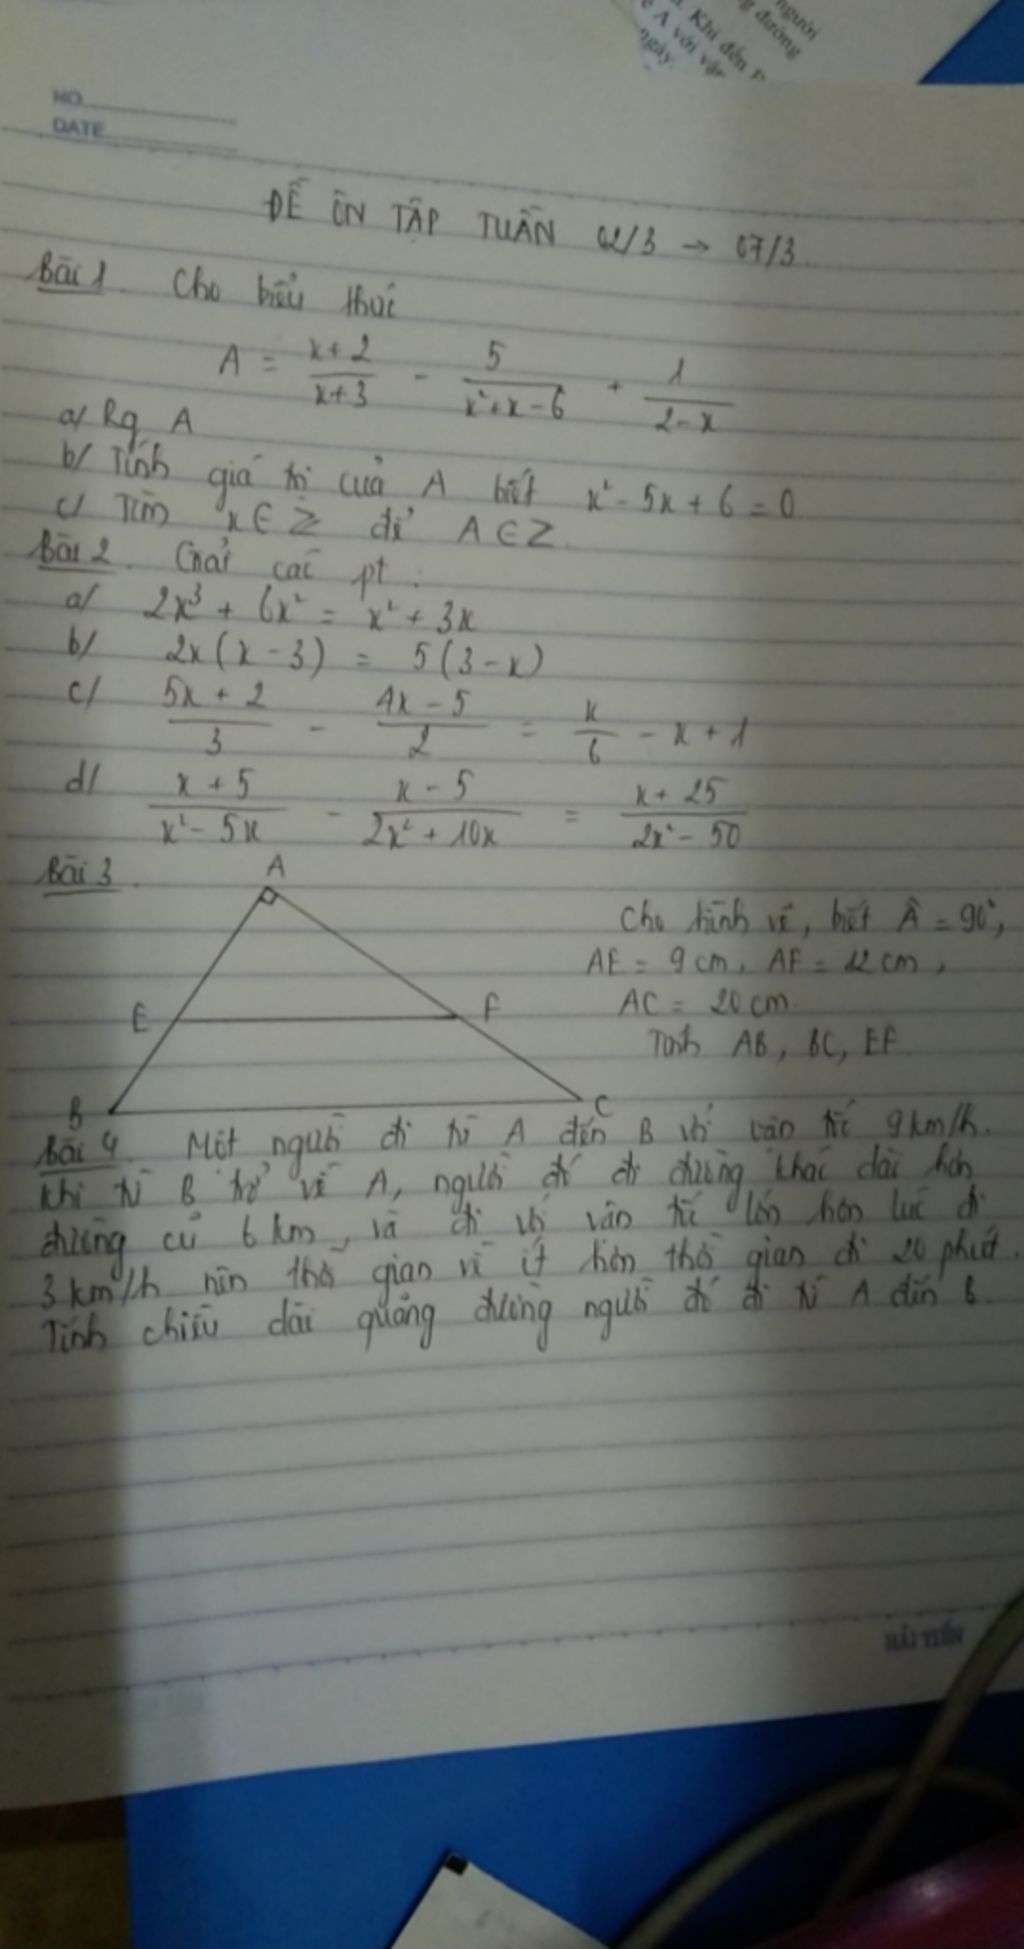 người
g đường
. Khi đến
A với vận
ngày.
NO
DATE
ĐỀ ÔN TẬP TUẦN 02/3 → 07/3
Bài 1. Cho biểu thức
A = \frac{x+2}{x+3} - \frac{5}{x²+x-6} + \frac{1}{2-x}
a/ Rg A
b/ Tính giá trị của A biết x² - 5x + 6 = 0
c/ Tìm x ∈ Z để A ∈ Z.
Bài 2. Giải các pt :
a/ 2x³ + 6x² = x² + 3x
b/ 2x(x - 3) = 5(3 - x)
c/ \frac{5x + 2}{3} - \frac{4x - 5}{2} = \frac{x}{6} - x + 1
d/ \frac{x + 5}{x² - 5x} - \frac{x - 5}{2x² + 10x} = \frac{x + 25}{2x² - 50}
Bài 3.
A
E
F
B
C
Cho hình vẽ, biết Â = 90°,
AE = 9 cm, AF = 12 cm,
AC = 20 cm.
Tính AB, BC, EF
Bài 4. Một người đi từ A đến B với vận tốc 9 km/h.
Khi từ B trở về A, người đó đi đường khác dài hơn
đường cũ 6 km, và đi với vận tốc lớn hơn lúc đi
3 km/h nên thời gian về ít hơn thời gian đi 20 phút.
Tính chiều dài quảng đường người đó đi từ A đến B.
HẢI TIẾN